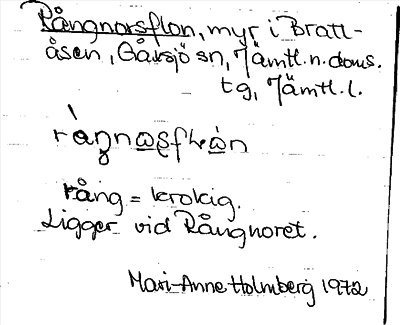 Rångnorsflon, myr i Bratt-
åsen, Gåxsjö sn, Jämtl. n. doms.
tg, Jämtl. l.
rång = krokig.
Ligger vid Rångnoret.
Mari-Anne Holmberg 1972